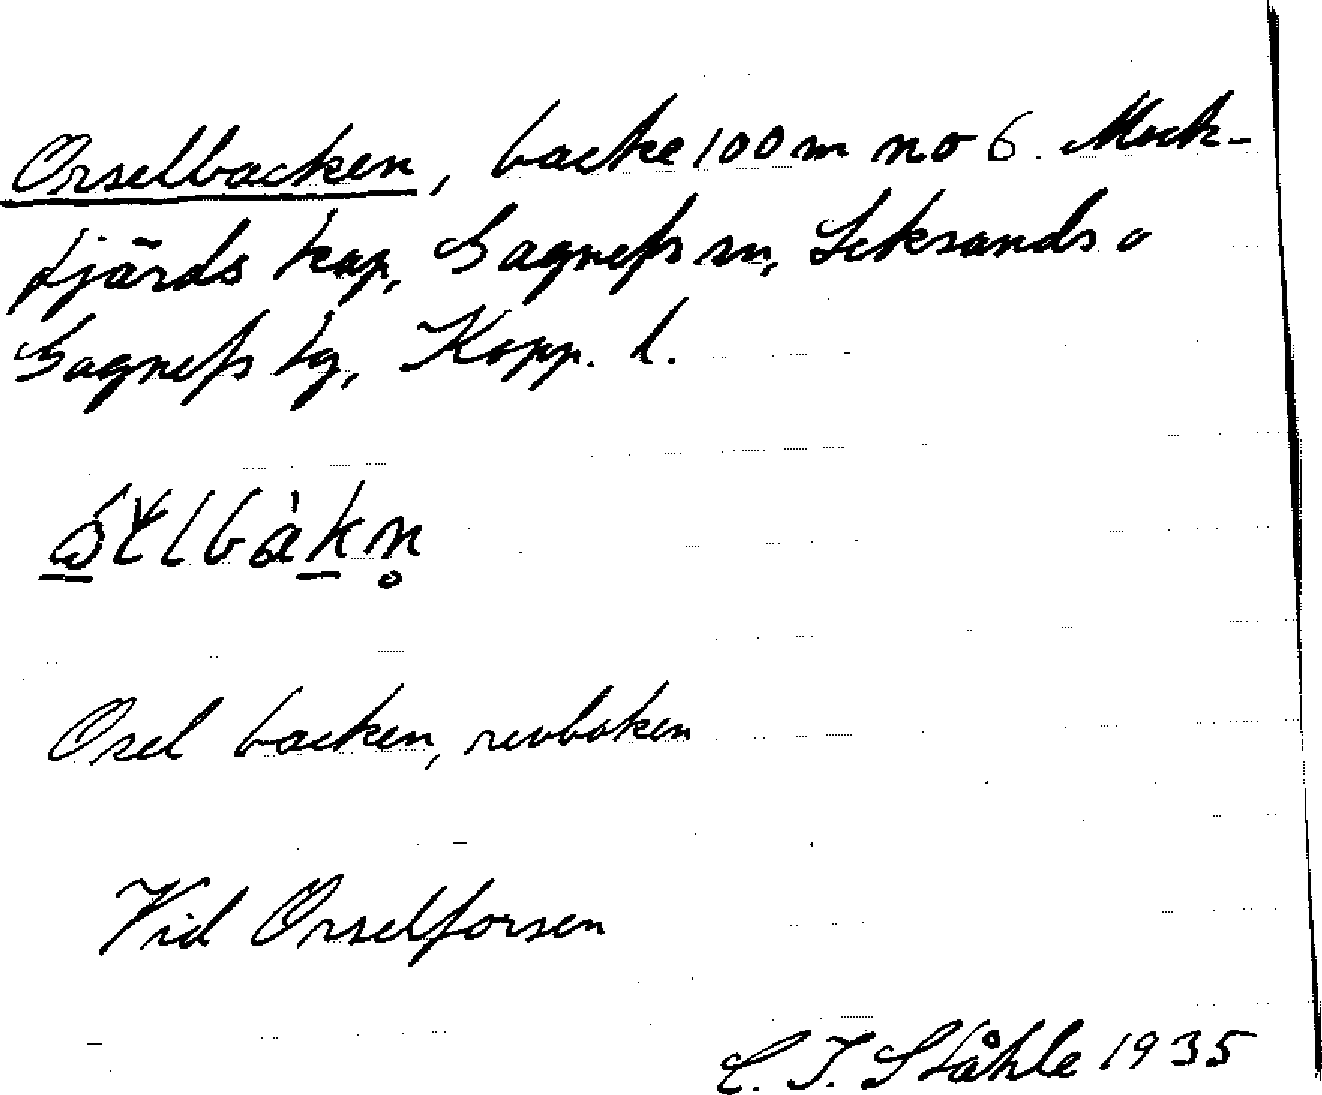 Orselbacken, backe 100 m no 6. Mock-
fjärds kap, Gagnefs sn, Leksands o
Gagnefs tg, Kopp. l.
Osel backen, revboken
Vid Orselforsen
C. I. Ståhle 1935